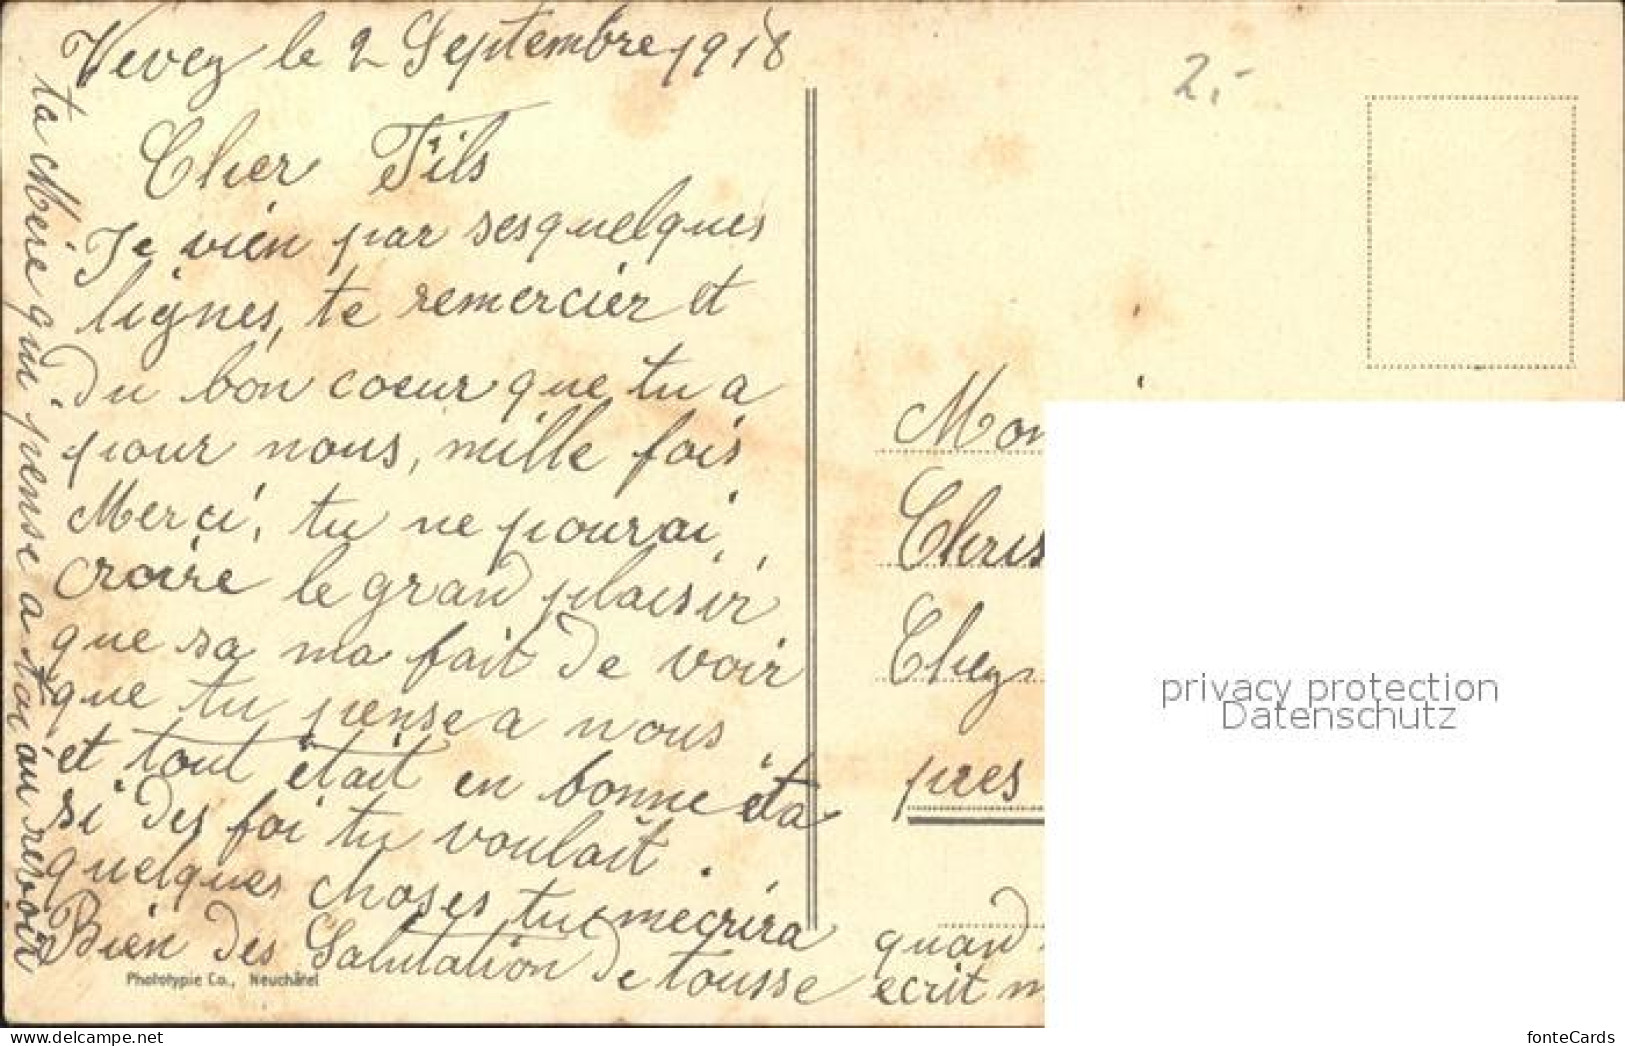 Vevey le 2 Septembre 1918
Cher Fils
Je vien par ses quelques
lignes, te remercier et
Du bon coeur que tu a
pour nous, mille fois
Merci, tu ne pourai
croire le grand plaisir
que sa ma fait de voir
que tu pense a nous
et tout était en bonne éta
si des foi tu voulait
quelques choses tu mecrira
Bien des Salutation de tousse
ta Mère qui pense a toi au revoir
Phototypie Co., Neuchâtel
2,-
Mon
Chris
Chey
pres
quand
ecrit m
privacy protection
Datenschutz
delcampe.net
fonteCards